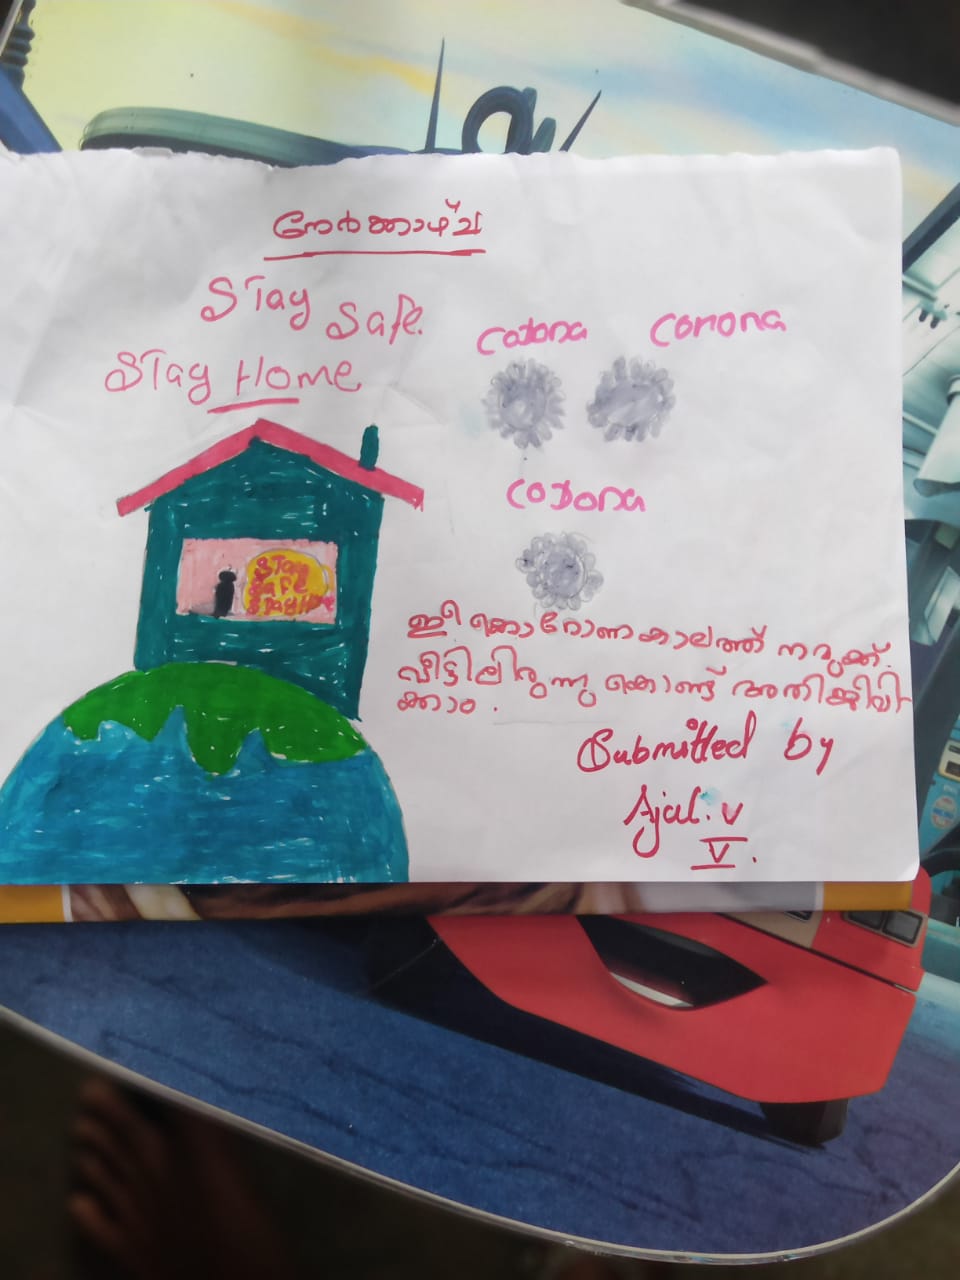 നേർക്കാഴ്ച
Stay Safe.
Stay Home
Corona Corona
Corona
ഈ കൊറോണകാലത്ത് നമുക്ക്.
വീട്ടിലിരുന്നു കൊണ്ട് അതിജീവി
ക്കാം.
Stay
Safe
Stay Home
Submitted by
Ajal. V
V.